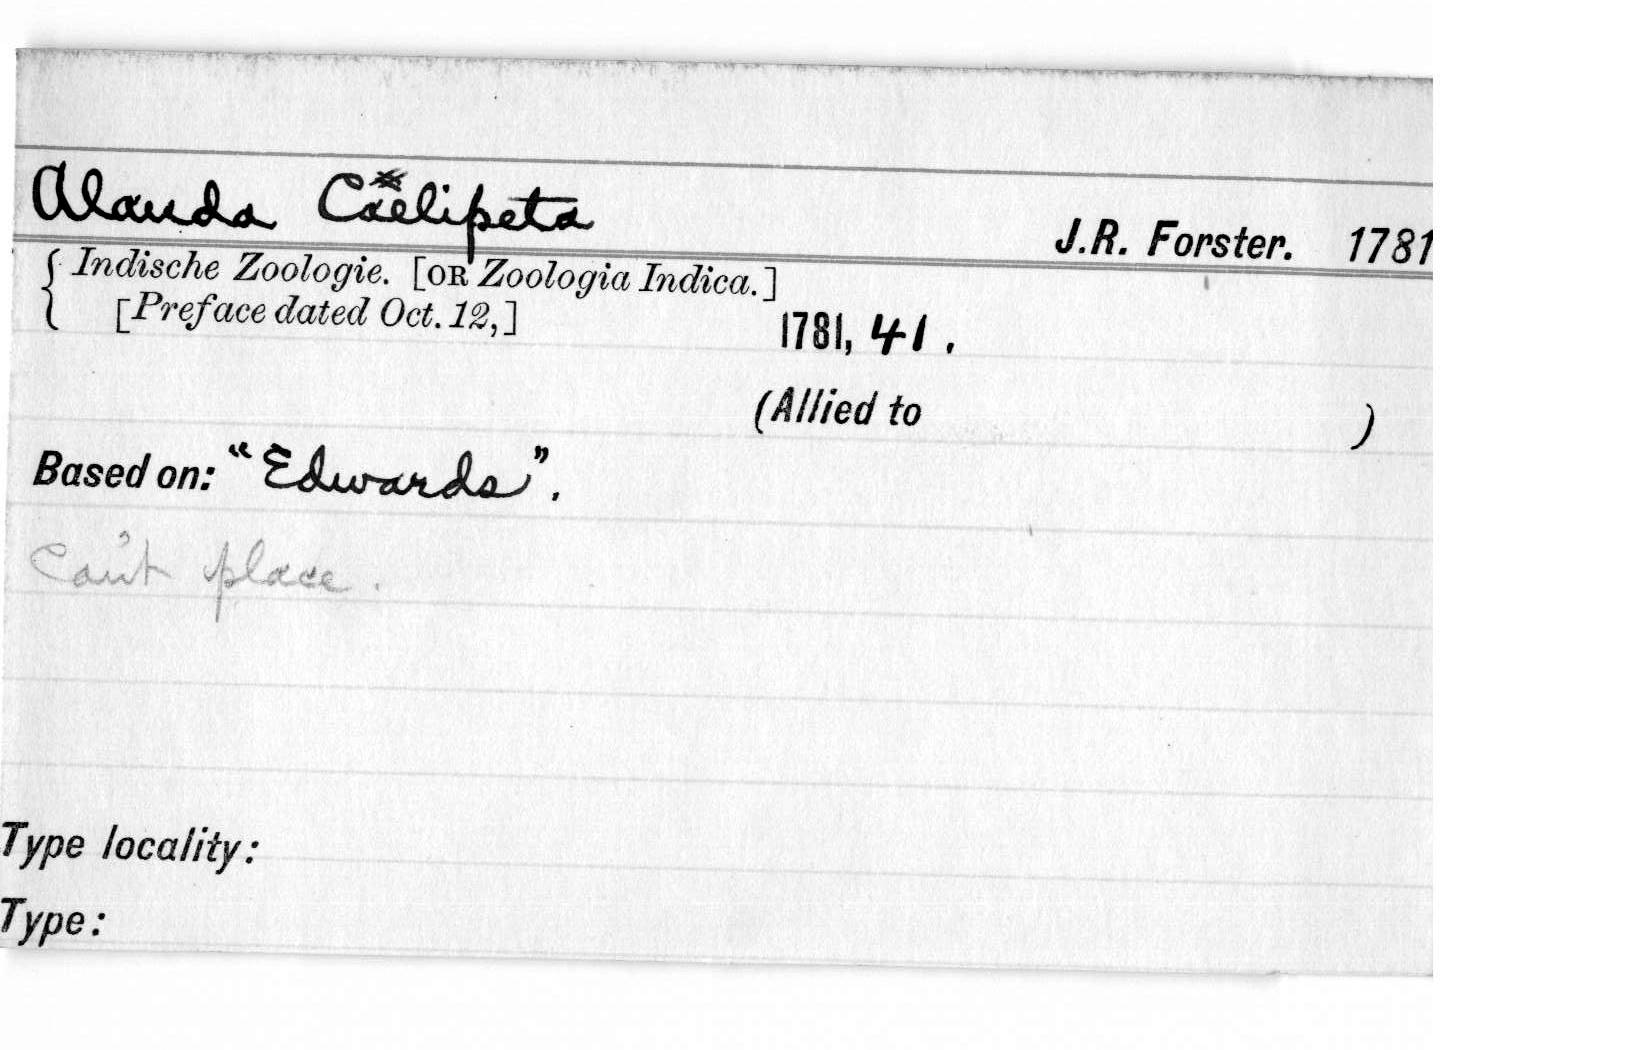 Alauda Caelipeta
J.R. Forster. 1781
Indische Zoologie. [OR Zoologia Indica.]
[Preface dated Oct. 12,]
1781, 41.
(Allied to )
Based on: "Edwards".
Can't place.
Type locality:
Type: